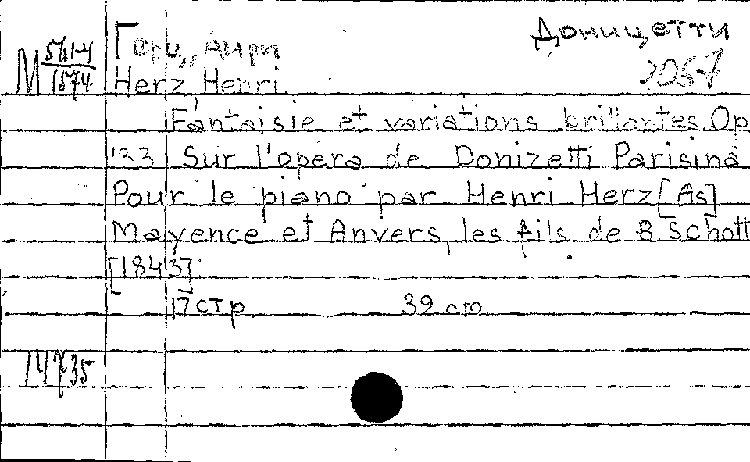 Доницетти
M 561-4/1574
Герц, Анри
2057
Herz Henri
Fantaisie et variations brillantes. Op
133 Sur l'opera de Donizetti Parisina
Pour le piano par Henri Herz [As]
Mayence et Anvers, les fils de B. Schott
[1843].
17 стр. 39 см
14735